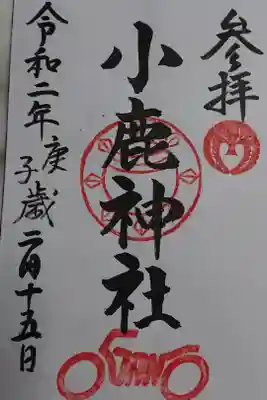 参拝
小鹿神社
令和二年庚子歳二月十五日